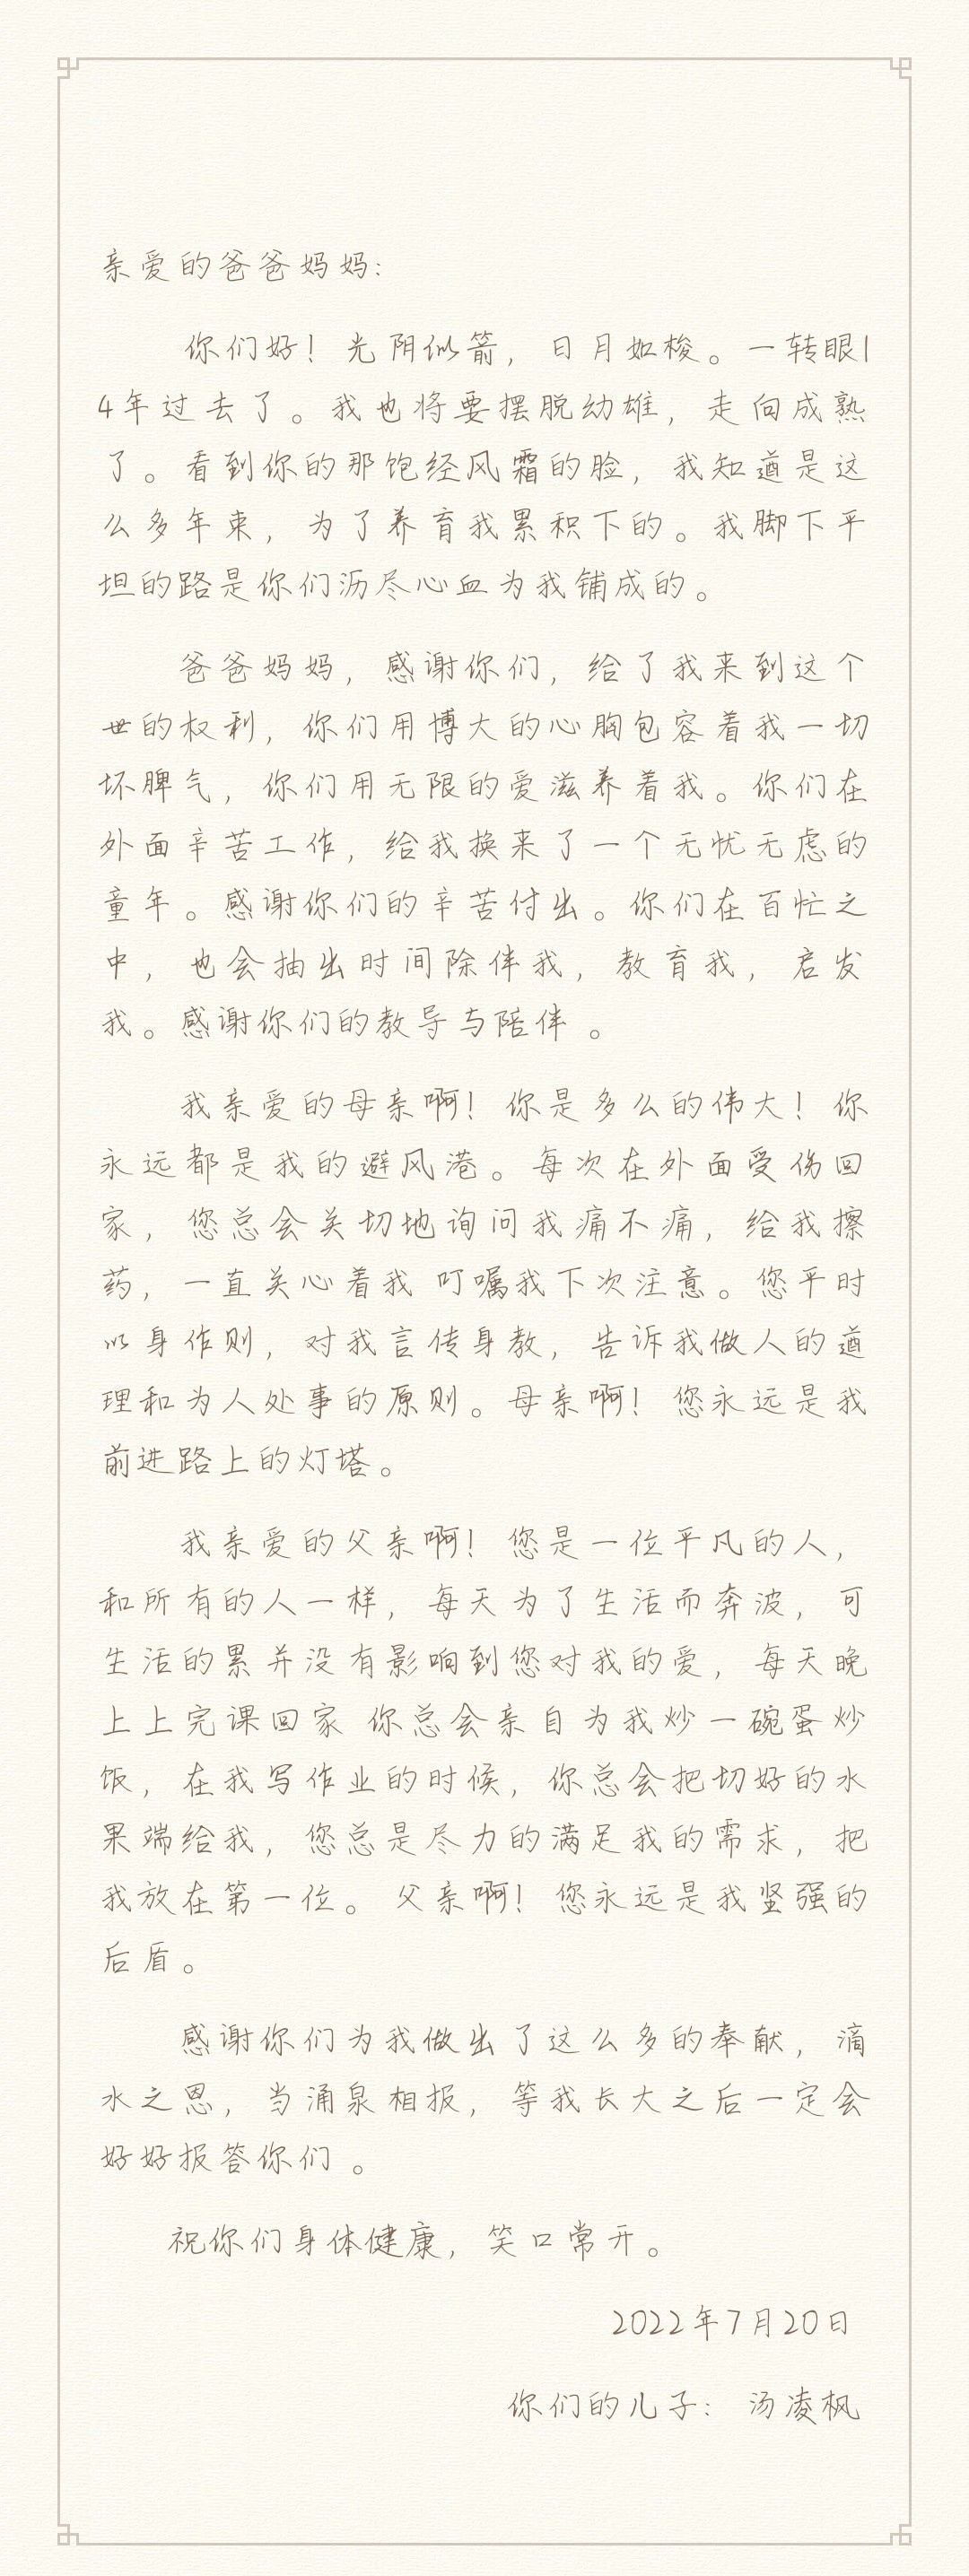 亲爱的爸爸妈妈:
你们好！光阴似箭，日月如梭。一转眼1
4年过去了。我也将要摆脱幼雄，走向成熟
了。看到你的那饱经风霜的脸，我知道是这
么多年束，为了养育我累积下的。我脚下平
坦的路是你们沥尽心血为我铺成的。
爸爸妈妈，感谢你们，给了我来到这个
世的权利，你们用博大的心胸包容着我一切
坏脾气，你们用无限的爱滋养着我。你们在
外面辛苦工作，给我换来了一个无忧无虑的
童年。感谢你们的辛苦付出。你们在百忙之
中，也会抽出时间除伴我，教育我，启发
我。感谢你们的教导与陪伴 。
我亲爱的母亲啊！你是多么的伟大！你
永远都是我的避风港。每次在外面受伤回
家，您总会关切地询问我痛不痛，给我擦
药，一直关心着我 叮嘱我下次注意。您平时
以身作则，对我言传身教，告诉我做人的道
理和为人处事的原则。母亲啊！您永远是我
前进路上的灯塔。
我亲爱的父亲啊！您是一位平凡的人，
和所有的人一样，每天为了生活而奔波，可
生活的累并没有影响到您对我的爱，每天晚
上上完课回家 你总会亲自为我炒一碗蛋炒
饭，在我写作业的时候，你总会把切好的水
果端给我，您总是尽力的满足我的需求，把
我放在第一位。 父亲啊！您永远是我坚强的
后盾。
感谢你们为我做出了这么多的奉献，滴
水之恩，当涌泉相报，等我长大之后一定会
好好报答你们 。
祝你们身体健康，笑口常开。
2022年7月20日
你们的儿子： 汤凌枫